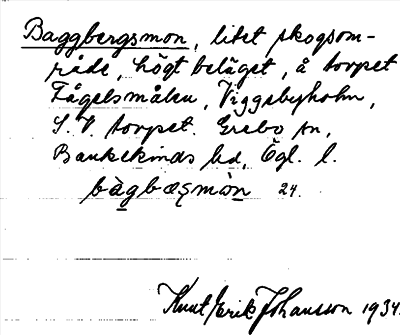 Baggbergsmon, litet skogsom-
råde, högt beläget, å torpet
Fågelsmålen, Viggebyholm,
S. V. torpet. Grebo sn,
Bankekinds hd, Ögl. l.
bàgbæʂmòn 24.
Knut Erik Johansson 1934.